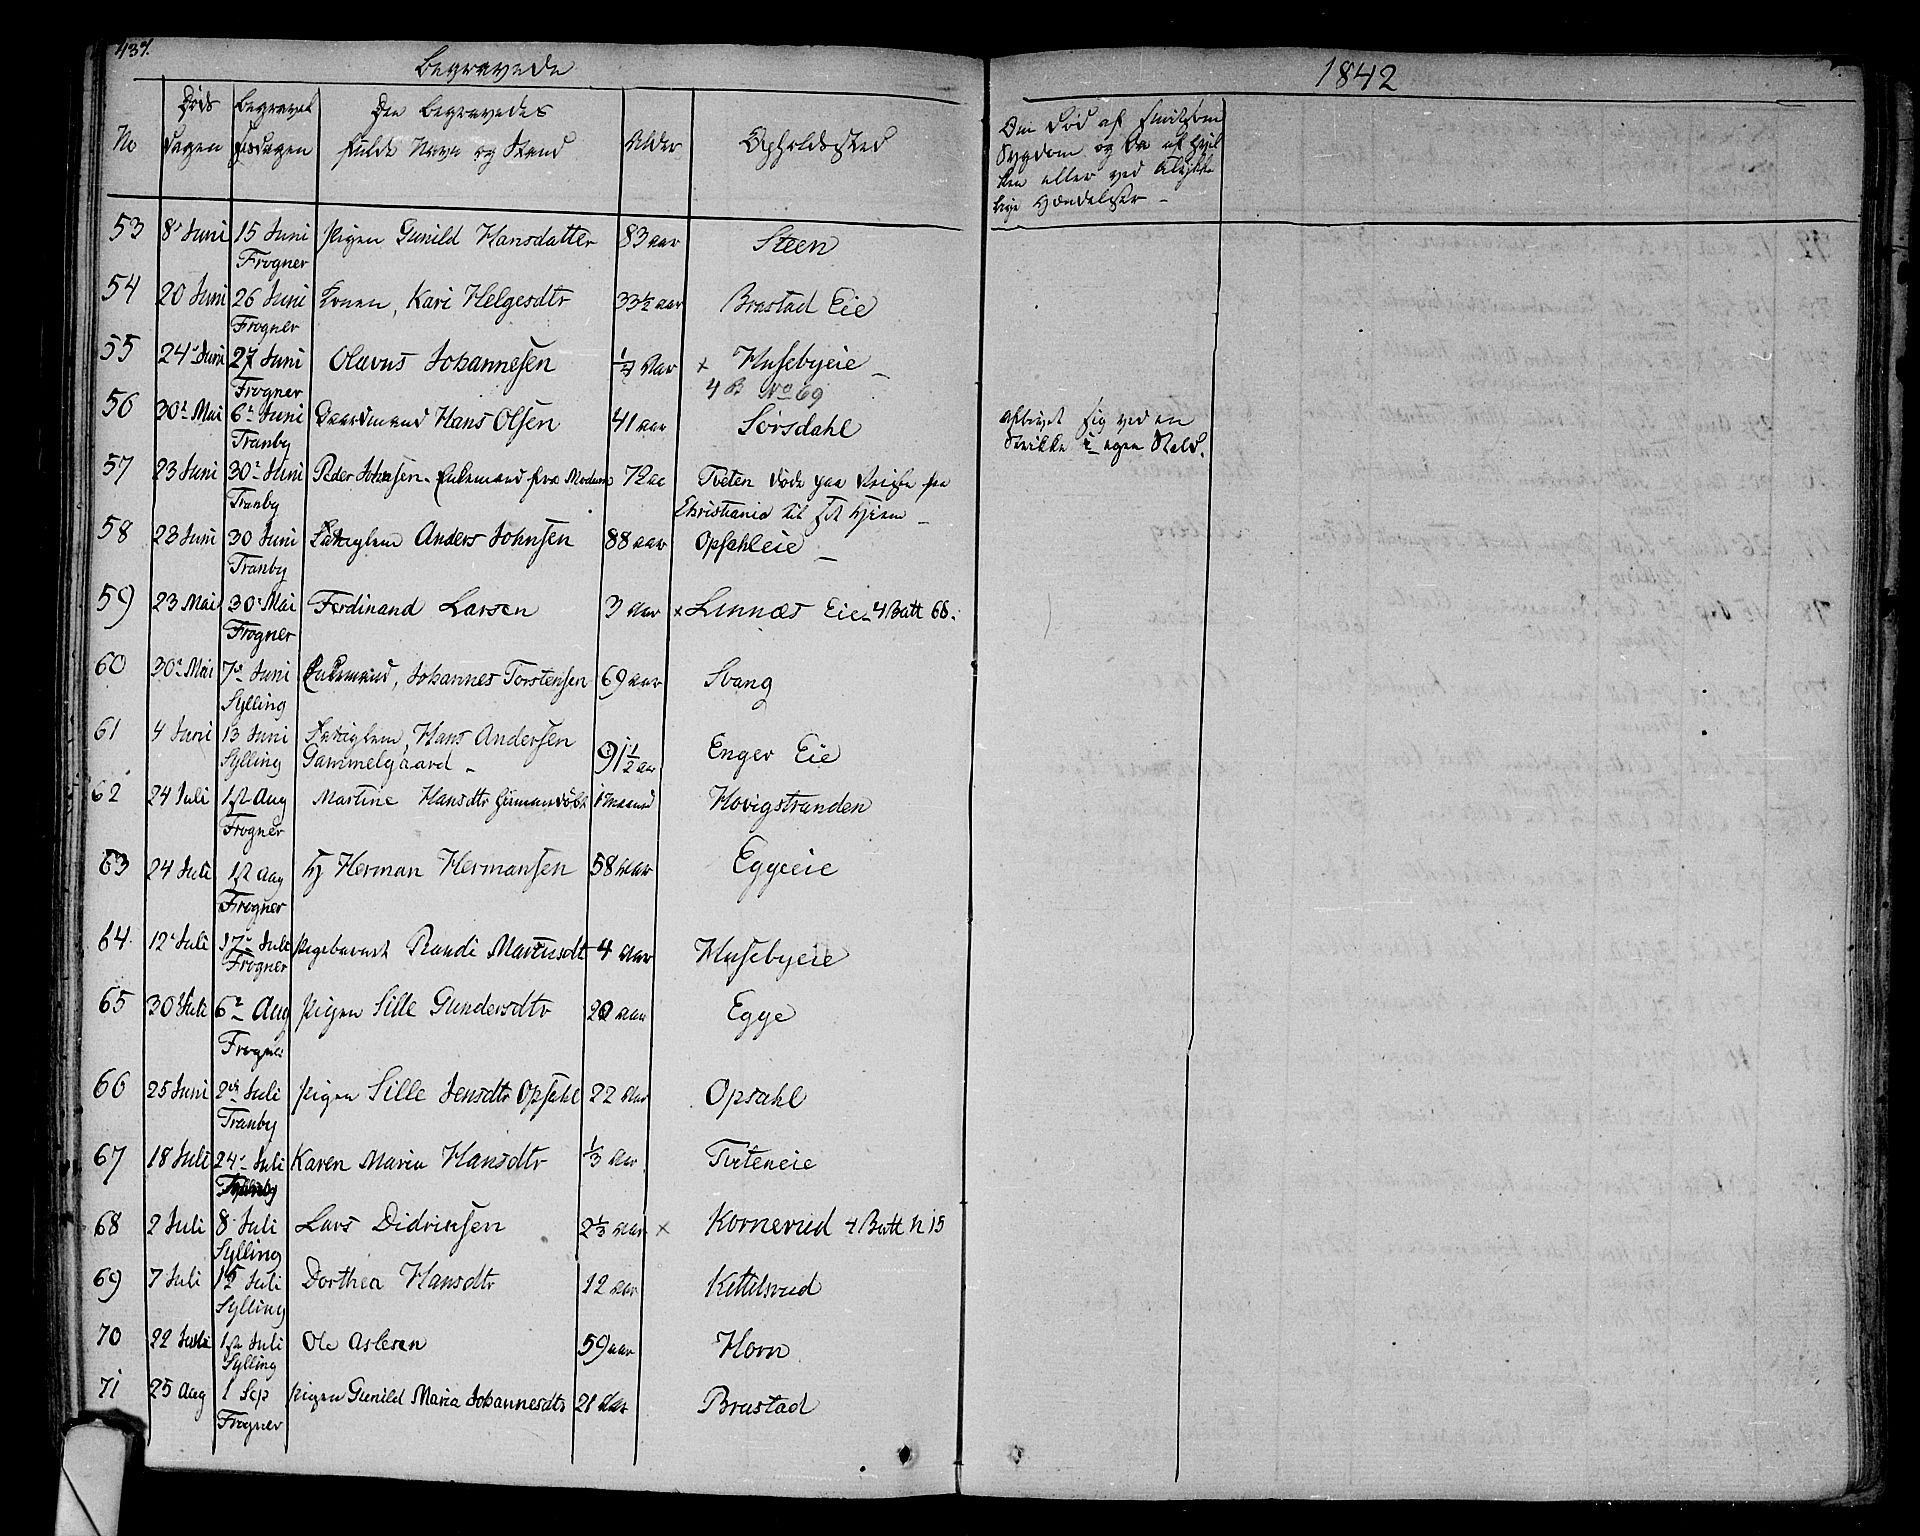 437.
Begravede
1842
No
Døds
Dagen
Begravel
sesdagen
Den Begravedes
fulde Navn og Stand
Alder
Opholdssted
Om Død af Smitsom
Sygdom og da af hvil
ken eller ved Ulykke
lige Hændelser -
53 8de Juni 15 Juni Pigen Gunild Hansdatter 83 aar Steen
Frogner
54 20 Juni 26 Juni Konen, Kari Helgesdtr 33½ aar Brastad Eie
Frogner
55 24de Juni 27 Juni Olavus Johannesen Aar × Husebyeie
Frogner 4 B No 69
56 30te Mai 6te Juni Gaardmand Hans Olsen 41 aar Sørsdahl
Tranby
Aflivet sig ved en
Strikke i egen Stald.
57 23 Juni 30te Juni Peder Johnsen. Enkemand fra Modum 72 aa Tveten døde paa Reise fra
Tranby Christiania til sit Hjem
58 23 Juni 30 Juni Lægslem Anders Johnsen 88 aar Opsahleie
Tranby
59 23 Mai 30te Mai Ferdinand Larsen 3 Aar × Linnæs Eie 4 Batt 68.
Frogner
60 30te Mai 7de Juni Enkemand, Johannes Torstensen 69 aar Svang
Sylling
61 4 Juni 13 Juni Hans Andersen
Sylling Gammelgaard 91½ aar Enger Eie
62 24 Juli 1st Aug Martine Hansdtr hjemmedøbt 1 maaned Hovigstranden
Frogner
63 24 Juli 1st Aug Hj Herman Hermansen 58 Aar Eggeeie
Frogner
64 12te Juli 17de Juli Pigebarnet Randi Martinsdt 4 Aar Husebyeie
Frogner
65 30 Juli 6te Aug Pigen Sille Gundersdtr 20 Aar Egge
Frogner
66 25 Juni 2den Juli Pigen Sille Jensdtr Opsahl 22 Aar Opsahl
Tranby
67 18 Juli 24de Juli Karen Maria Hansdtr ⅓ Aar Tveteneie
68 2 Juli 8de Juli Lars Didriksen 2⅓ Aar × Kornerud 4 Batt N 15
Sylling
69 7 Juli 15 Juli Dorthea Hansdtr 12 Aar Kittilsrud
Sylling
70 22 1st Juli Ole Aslesen 59 aar Horn
Sylling
71 25 Aug 1 Sep Pigen Gunild Maria Johannesdtr 21 Aar Brastad
Frogner